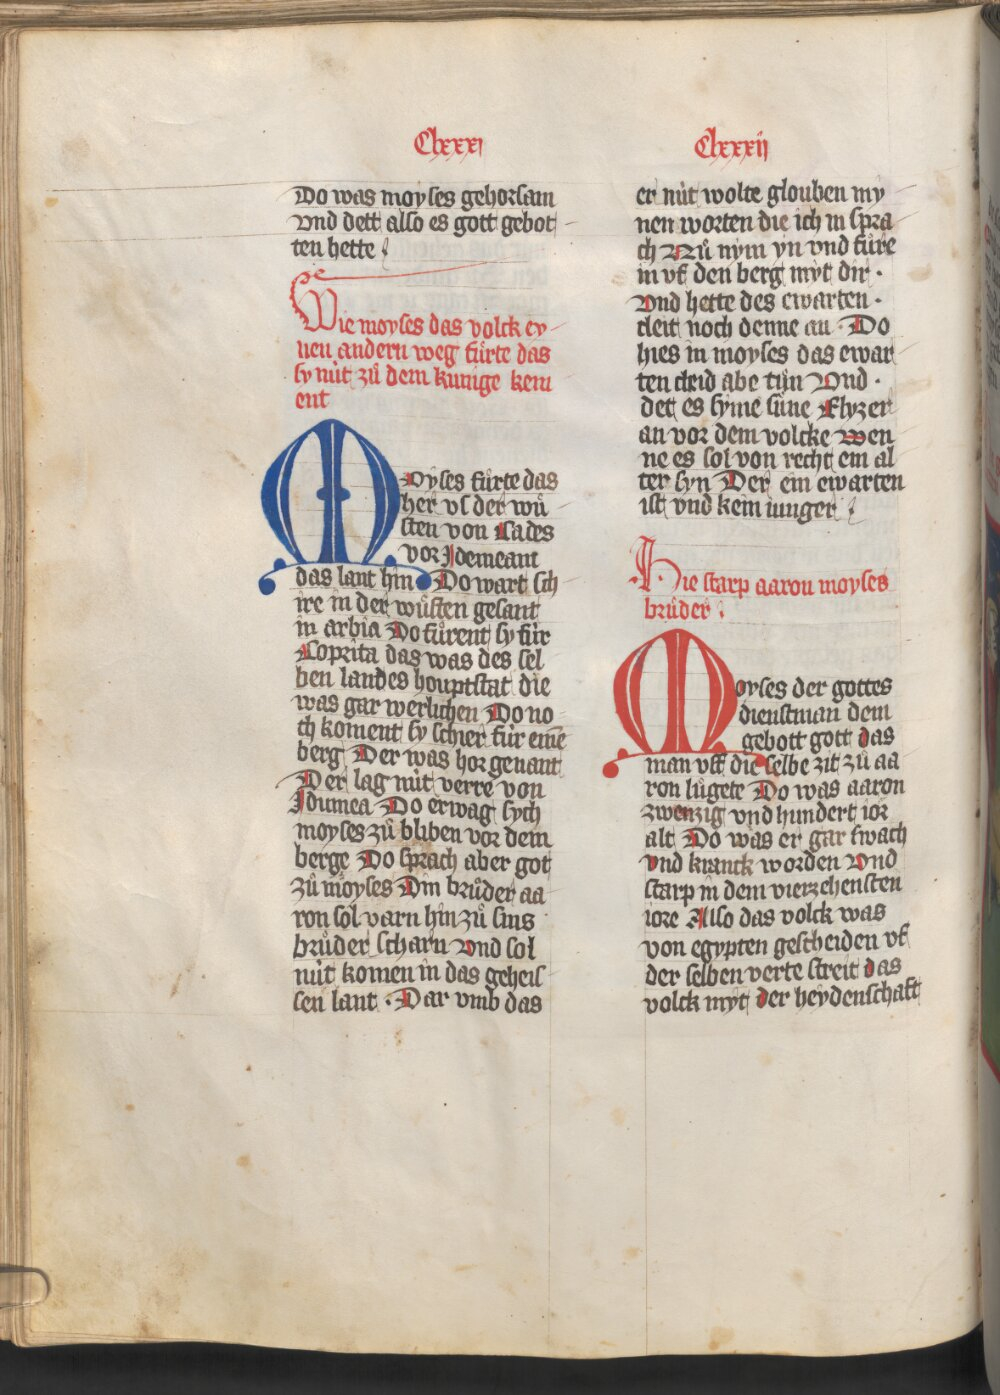 Clxxxi
Do was moyses gehorsam
vnd dett also es gott gebot
ten hette
Wie moyses das volck ey
nen andern weg fůrte das
sy nůt zů dem kunige kem
ent
Moyses fůrte das
her vs der wů
sten von Cades
vor Idemeam
das lant hin Do wart sch
ire in der wůsten gesant
in arbia Do fůrent sy fúr
Coprita das was des sel
ben landes houptstat die
was gar werlichen Do no
ch koment sy schier fúr eine
berg Der was hor genant
Der lag nút verre von
Idumea Do erwag sych
moyses zů bliben vor dem
berge Do sprach aber got
zů moyses Din brůder aa
ron sol varn hin zů sins
brůder scharn vnd sol
nút komen in das geheis
sen lant · Dar vmb das
Clxxxii
er nút wolte glouben my
nen worten die ich in spra
ch Nů nym yn vnd fůre
in vf den berg myt dir ·
Vnd hette des ewarten ·
cleit noch denne an · Do
hies in moyses das ewar
ten cleid abe tůn Vnd ·
det es syme sune Elyzer
an vor dem volcke Wen
ne es sol von recht ein al
ter syn Der ein ewarten
ist vnd kein iunger
Hie starp aaron moyses
brůder
Moyses der gottes
dienstman dem
gebott gott das
man vff die selbe zit zů aa
ron lůgete Do was aaron
zwenzig vnd hundert ior
alt Do was er gar swach
vnd kranck worden Vnd
starp in dem vierzehensten
iore Also das volck was
von egypten gescheiden vf
der selben verte streit das
volck myt der heydenschaft